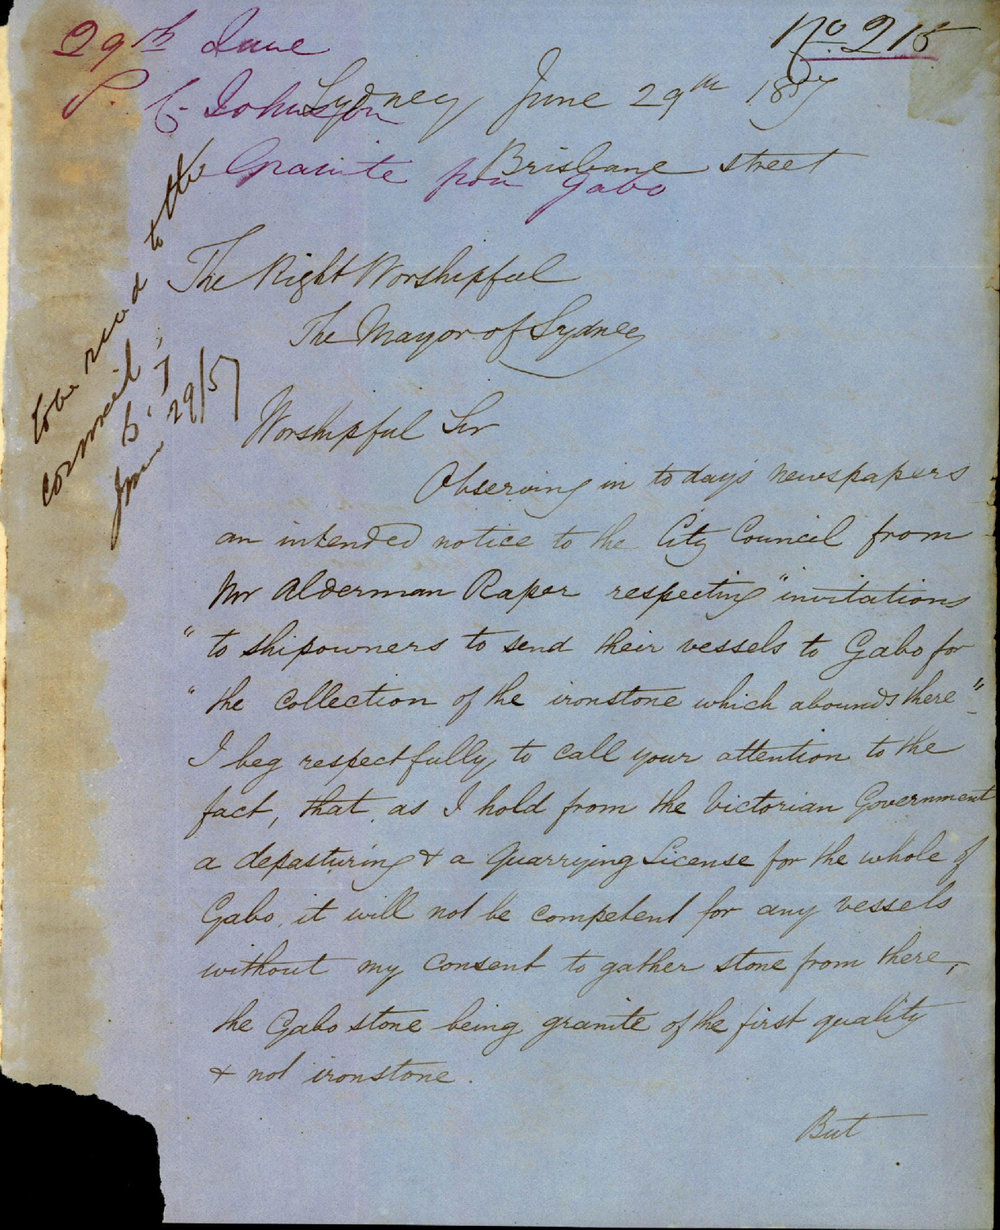 No. 215
29th June
P. C. Johnson
Granite from Gabo
Sydney June 29th 1857
Brisbane street
to be read to the
council,
June 29/57
The Right Worshipful
The Mayor of Sydney
Worshipful Sir
Observing in to days newspapers
an intended notice to the City Council from
Mr Alderman Raper respecting "invitations
" to shipowners to send their vessels to Gabo for
" the collection of the ironstone which abounds there"
I beg respectfully to call your attention to the
fact, that, as I hold from the Victorian Government
a depasturing & a Quarrying License for the whole of
Gabo, it will not be competent for any vessels
without my consent to gather stone from there,
the Gabo stone being granite of the first quality
& not ironstone.
But